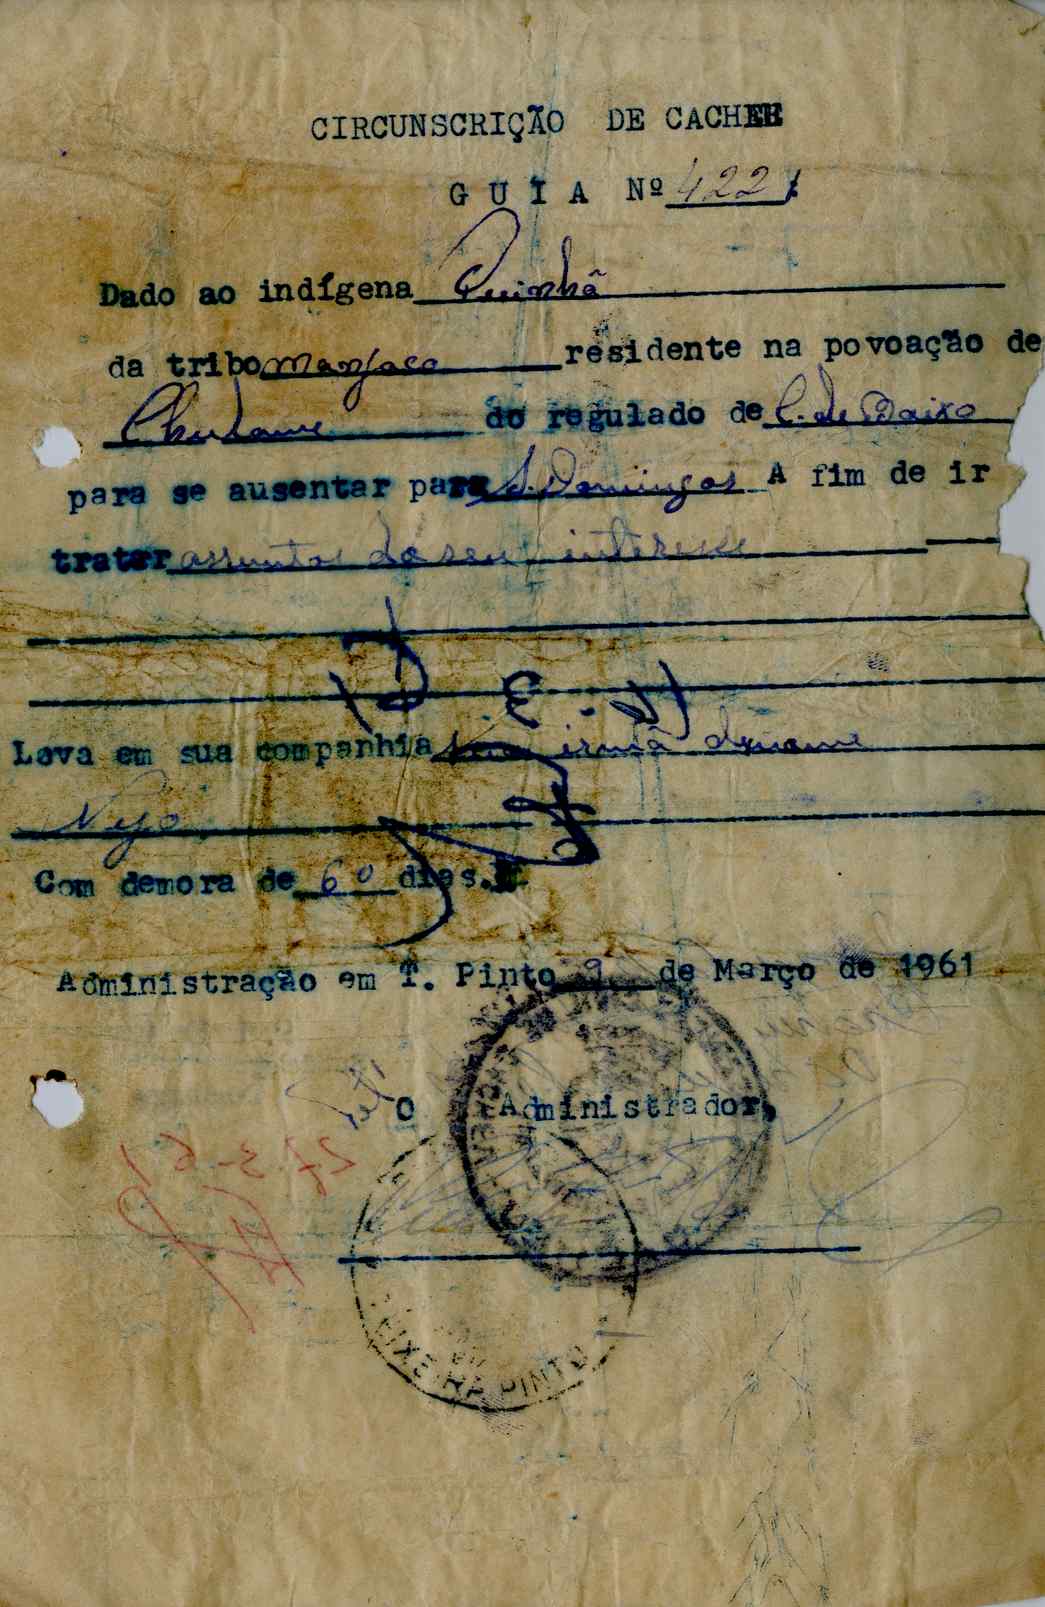 CIRCUNSCRIÇÃO DE CACHEU
GUIA Nº 422
Dado ao indígena Quinhã
da tribo manjaca residente na povoação de
Churame do regulado de C. de Baixo
para se ausentar para S. Domingos A fim de ir
tratar assuntos do seu interesse
Leva em sua companhia sua irmã
Com demora de 60 dias.
Administração em T. Pinto 9 de Março de 1961
O Administrador,
TEIXEIRA PINTO
27-3-61